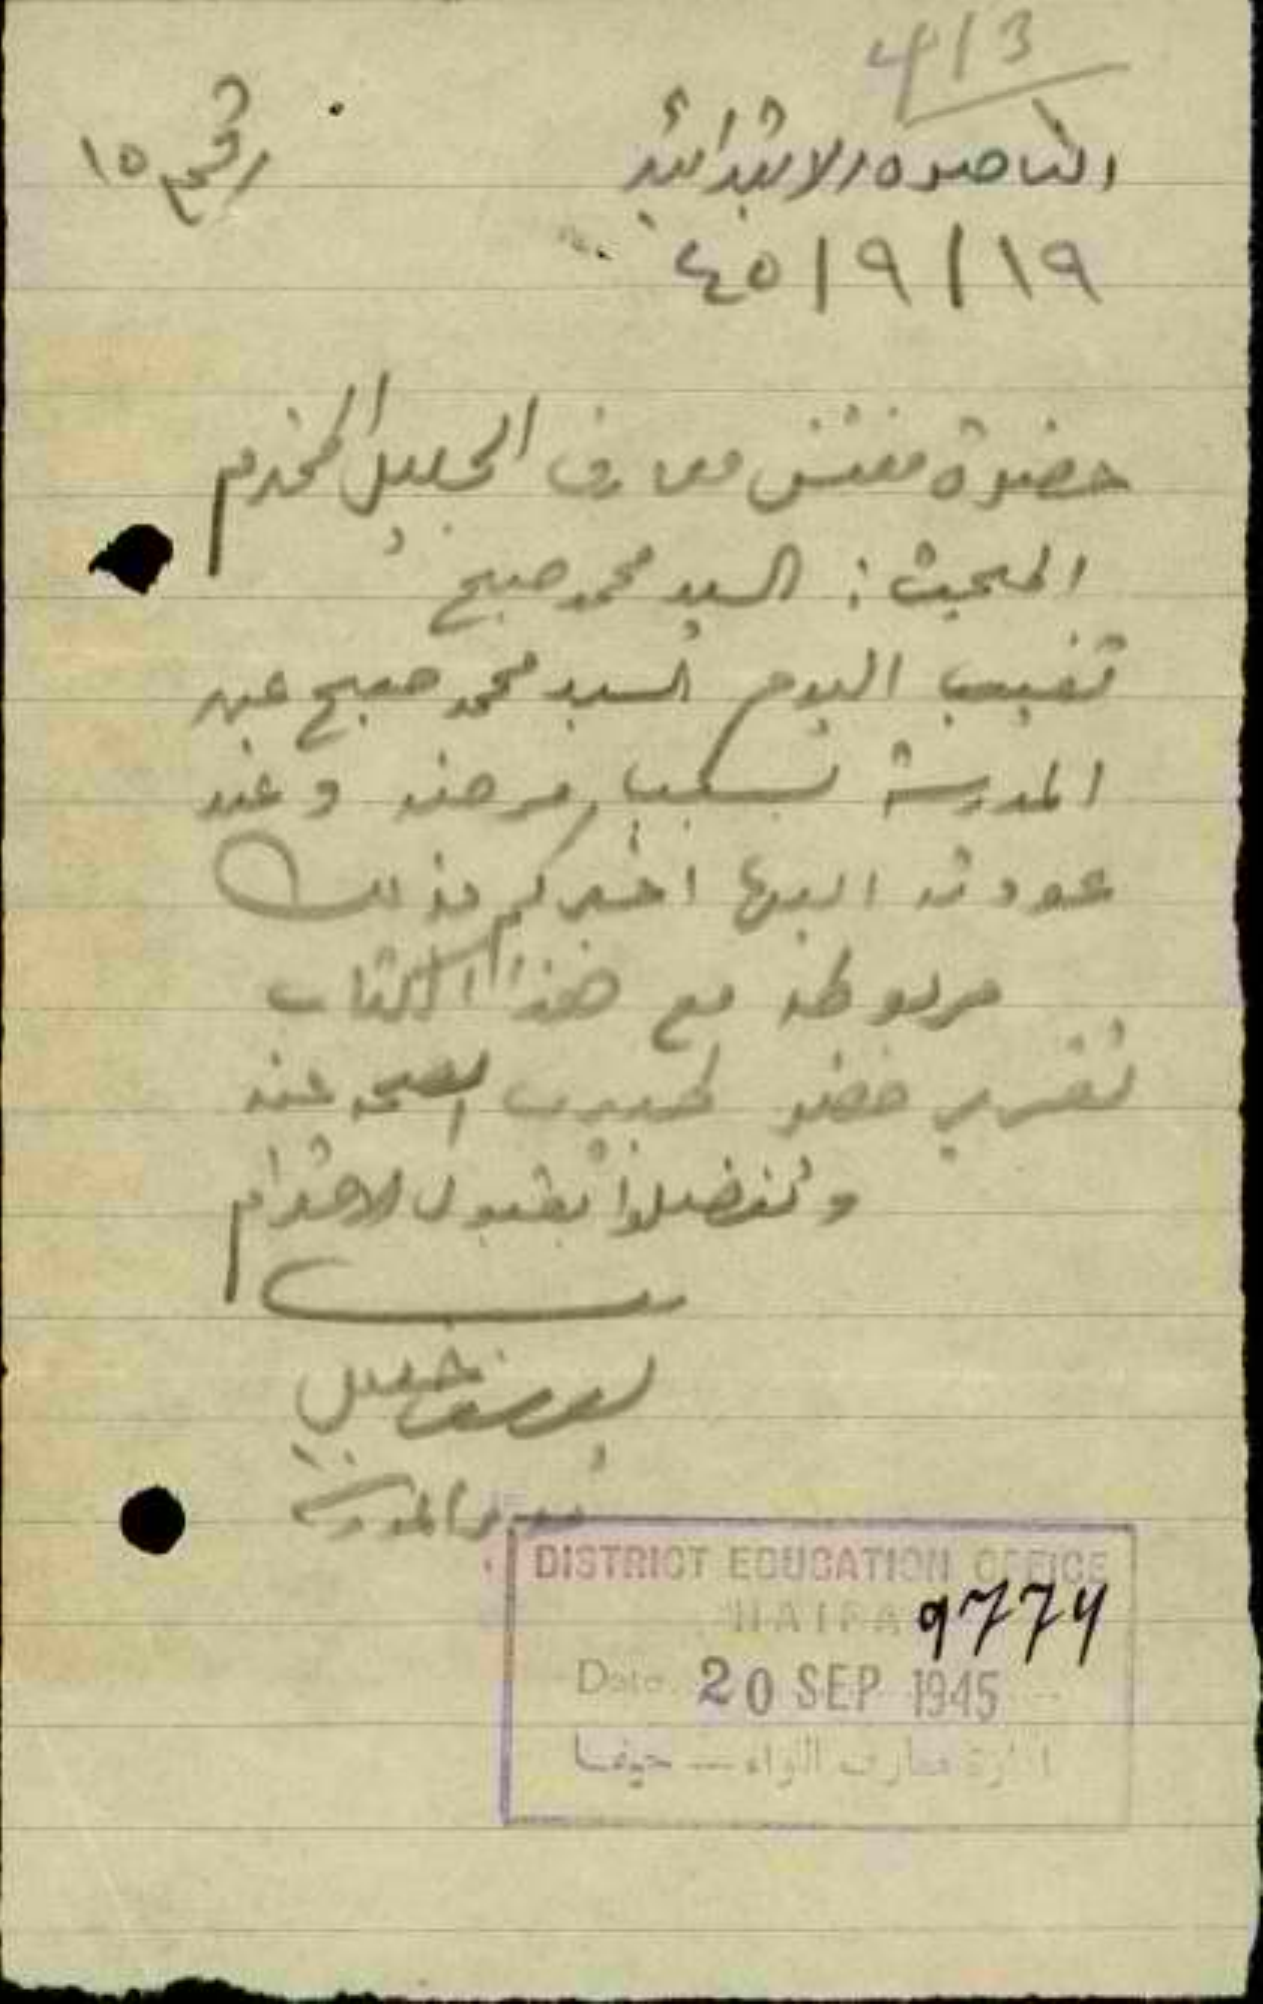 4/3
الناصرة الابتدائية
رقم ١٥
١٩/٩/٤٥
حضرة مفتش معارف الجليل المحترم
المبحث: السيد محمد صبح
تغيب اليوم السيد محمد صبح عن
المدرسة بسبب مرضه وعند
عودته اليها اخبركم بذلك
مربوطه مع هذا الكتاب
تقرير حضرة طبيب الصحه عنه
وتفضلوا بقبول الاحترام
يوسف خليل
مدير المدرسة
DISTRICT EDUCATION OFFICE
HAIFA
9774
Date 20 SEP 1945
ادارة معارف اللواء — حيفا